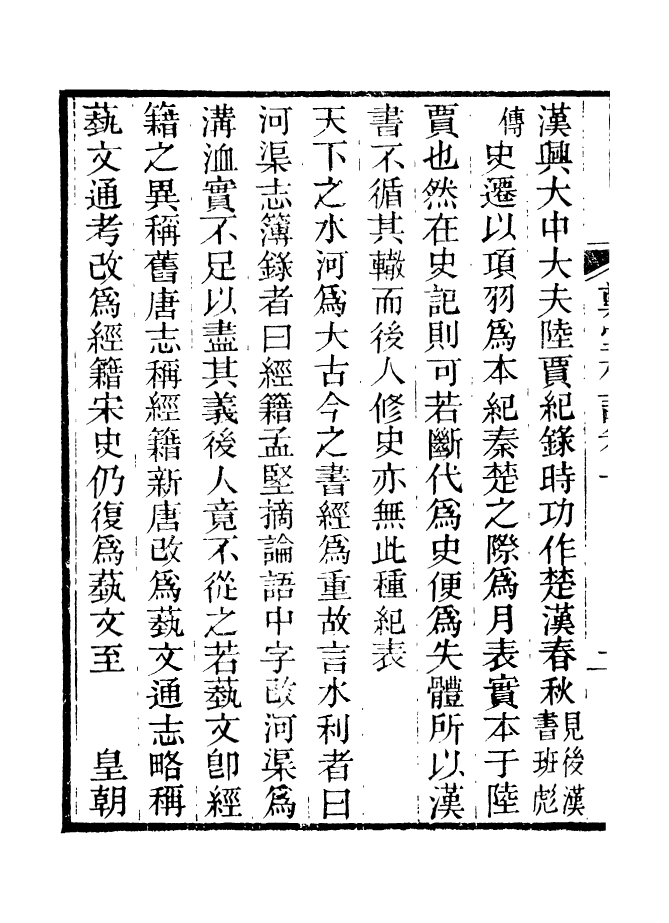 漢興大中大夫陸賈紀錄時功作楚漢春秋見後漢書班彪
傳史遷以項羽爲本紀秦楚之際爲月表實本于陸
賈也然在史記則可若斷代爲史便爲失體所以漢
書不循其轍而後人修史亦無此種紀表
天下之水河爲大古今之書經爲重故言水利者曰
河渠志簿錄者曰經籍孟堅摘論語中字改河渠爲
溝洫實不足以盡其義後人竟不從之若蓺文卽經
籍之異稱舊唐志稱經籍新唐改爲蓺文通志略稱
蓺文通考改爲經籍宋史仍復爲蓺文至　皇朝